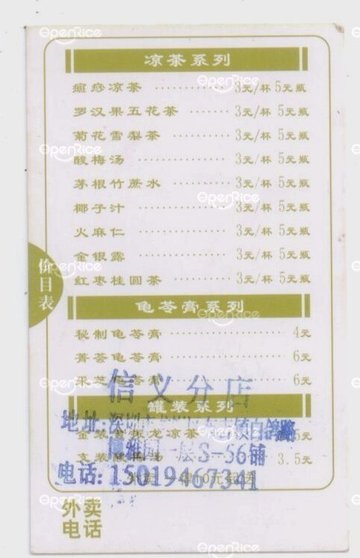 凉茶系列
癍痧凉茶 ············ 3元/杯 5元瓶
罗汉果五花茶 ········ 3元/杯 5元瓶
菊花雪梨茶 ·········· 3元/杯 5元瓶
酸梅汤 ·············· 3元/杯 5元瓶
茅根竹蔗水 ·········· 3元/杯 5元瓶
椰子汁 ·············· 3元/杯 5元瓶
火麻仁 ·············· 3元/杯 5元瓶
金银露 ·············· 3元/杯 5元瓶
红枣桂圆茶 ·········· 3元/杯 5元瓶
价目表
龟苓膏系列
秘制龟苓膏 ·············· 4元
菁荟龟苓膏 ·············· 6元
龟苓膏 ·············· 6元
信义分店
罐装系列
地址:深圳 白鸽路
龙凉茶
一层S-56铺
3.5元
电话:15019467341
外卖
电话
OpenRice